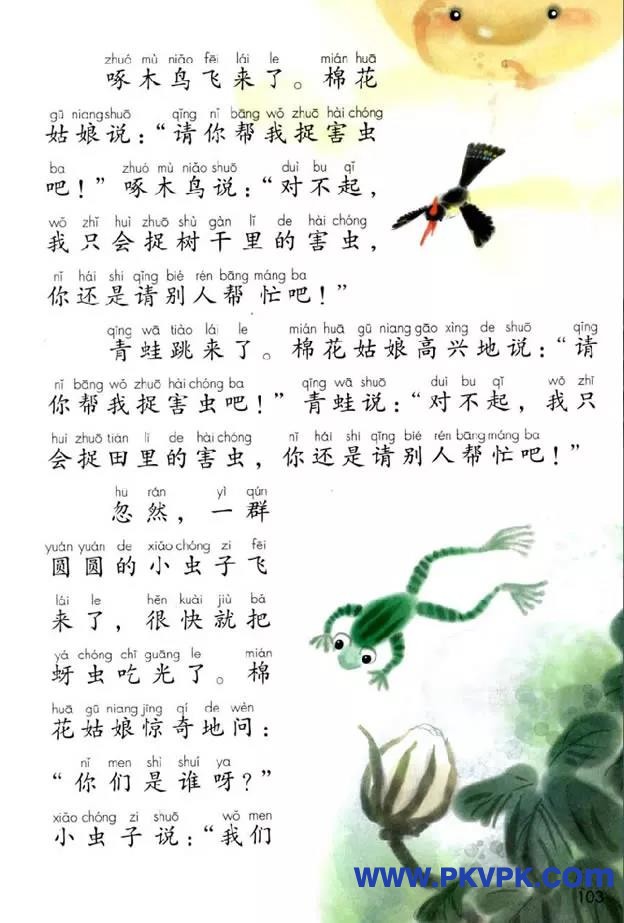 zhuó mù niǎo fēi lái le mián huā
啄木鸟飞来了。棉花
gū niang shuō qǐng nǐ bāng wǒ zhuō hài chóng
姑娘说：“请你帮我捉害虫
ba zhuó mù niǎo shuō duì bu qǐ
吧！”啄木鸟说：“对不起，
wǒ zhǐ huì zhuō shù gàn lǐ de hài chóng
我只会捉树干里的害虫，
nǐ hái shi qǐng bié rén bāng máng ba
你还是请别人帮忙吧！”
qīng wā tiào lái le mián huā gū niang gāo xìng de shuō qǐng
青蛙跳来了。棉花姑娘高兴地说：“请
nǐ bāng wǒ zhuō hài chóng ba qīng wā shuō duì bu qǐ wǒ zhǐ
你帮我捉害虫吧！”青蛙说：“对不起，我只
huì zhuō tián lǐ de hài chóng nǐ hái shi qǐng bié rén bāng máng ba
会捉田里的害虫，你还是请别人帮忙吧！”
hū rán yì qún
忽然，一群
yuán yuán de xiǎo chóng zi fēi
圆圆的小虫子飞
lái le hěn kuài jiù bǎ
来了，很快就把
yá chóng chī guāng le mián
蚜虫吃光了。棉
huā gū niang jīng qí de wèn
花姑娘惊奇地问：
nǐ men shì shuí ya
“你们是谁呀？”
xiǎo chóng zi shuō wǒ men
小虫子说：“我们
www.PKVPK.com
103